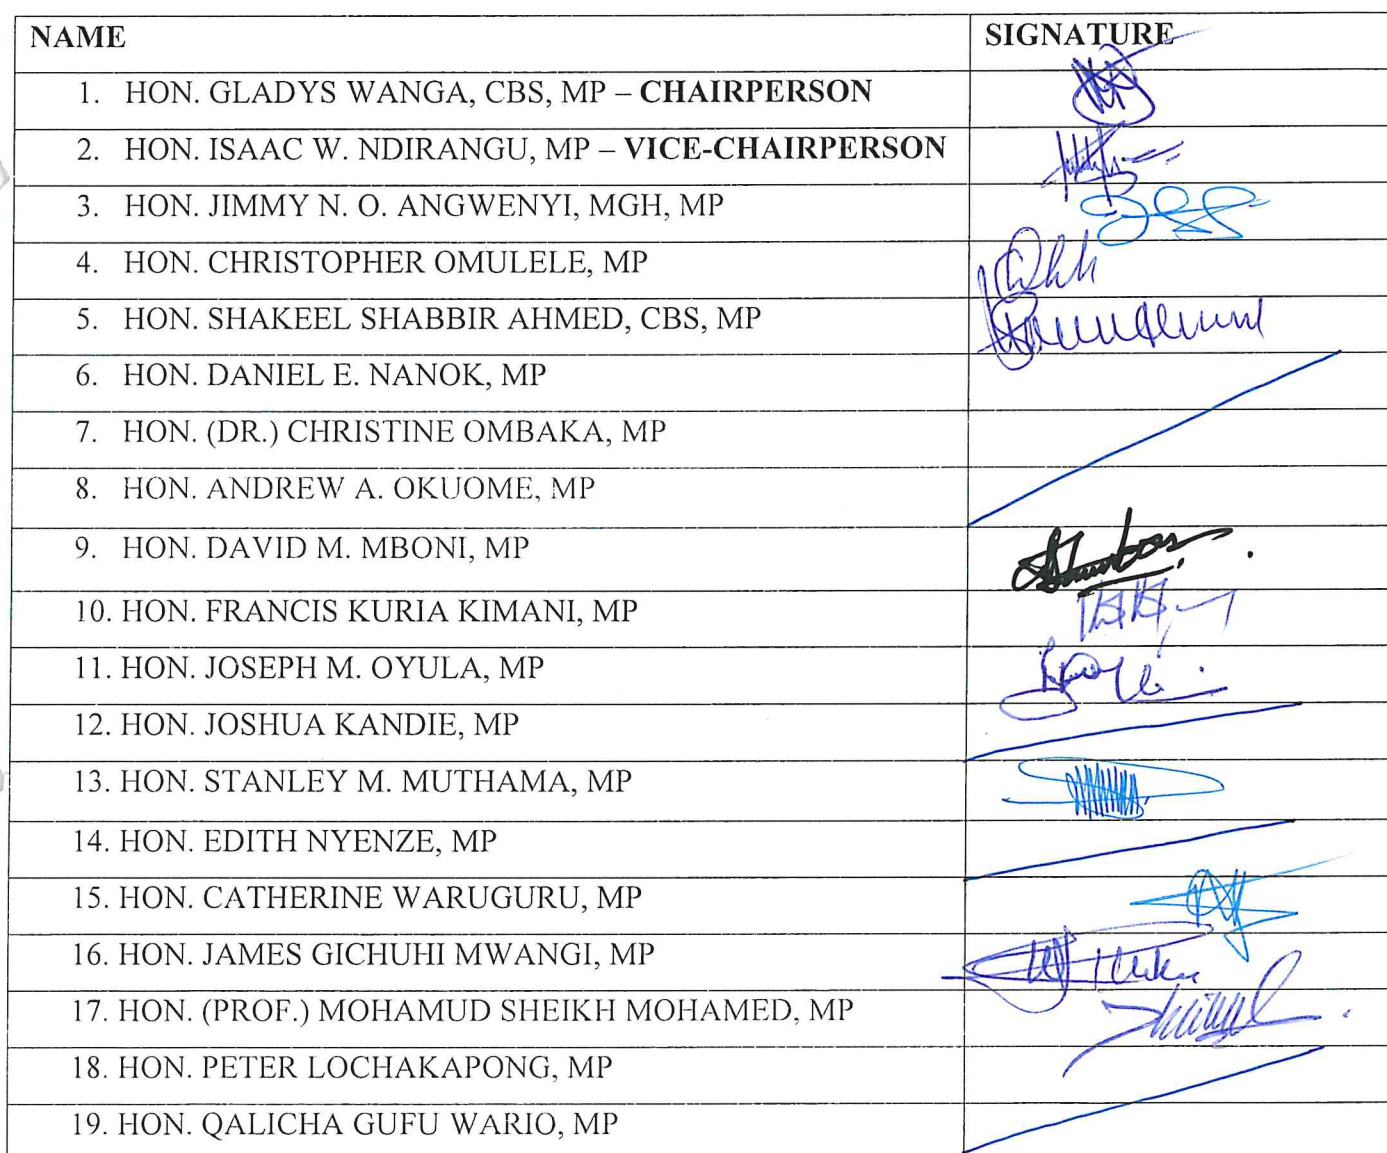 NAME SIGNATURE
1. HON. GLADYS WANGA, CBS, MP – CHAIRPERSON
2. HON. ISAAC W. NDIRANGU, MP – VICE-CHAIRPERSON
3. HON. JIMMY N. O. ANGWENYI, MGH, MP
4. HON. CHRISTOPHER OMULELE, MP
5. HON. SHAKEEL SHABBIR AHMED, CBS, MP
6. HON. DANIEL E. NANOK, MP
7. HON. (DR.) CHRISTINE OMBAKA, MP
8. HON. ANDREW A. OKUOME, MP
9. HON. DAVID M. MBONI, MP
10. HON. FRANCIS KURIA KIMANI, MP
11. HON. JOSEPH M. OYULA, MP
12. HON. JOSHUA KANDIE, MP
13. HON. STANLEY M. MUTHAMA, MP
14. HON. EDITH NYENZE, MP
15. HON. CATHERINE WARUGURU, MP
16. HON. JAMES GICHUHI MWANGI, MP
17. HON. (PROF.) MOHAMUD SHEIKH MOHAMED, MP
18. HON. PETER LOCHAKAPONG, MP
19. HON. QALICHA GUFU WARIO, MP